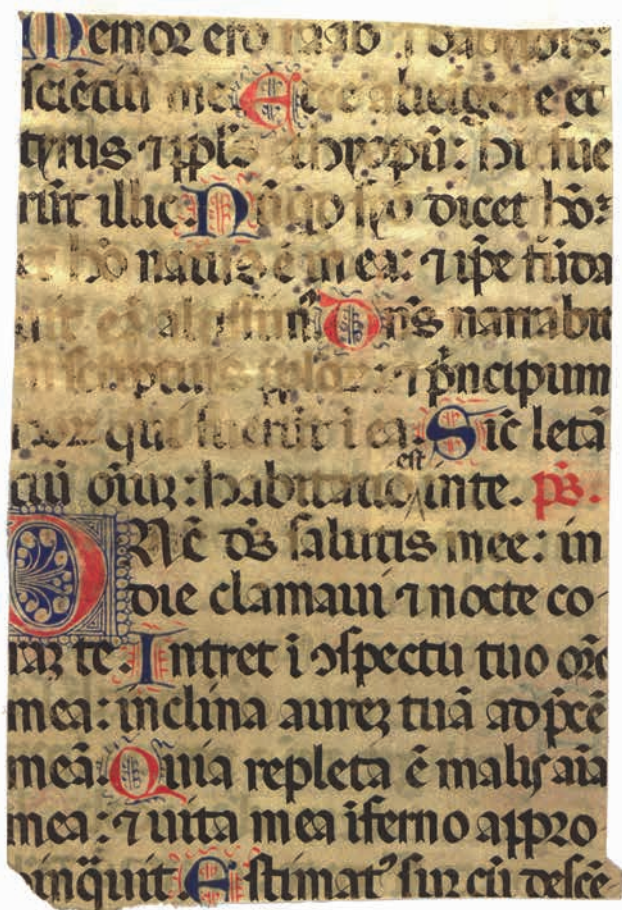 Memor ero raab ⁊ babilonis:
sciētiū me. Ecce alieigene et
tyrus ⁊ ppl̄s ethyopū: hi fue
rūt illic. Nūqd syō dicet hō:
et hō natus ē in ea: ⁊ ip̄e fūda
uit eā altissim⁹ Dn̄s narrabit
in scripturis pploꝝ: ⁊ p̄ncipum
hoꝝ qui fuerūt i ea. Sic̄ letā
ciū oīuꝫ: habitatio est inte. ps̄.
DNē ds̄ salutis mee: in
die clamaui ⁊ nocte co
raꝫ te. Intret i ꝯspectu tuo or̄o
mea: inclina aureꝫ tuā ad p̄cē
meā. Quia repleta ē malis aīa
mea: ⁊ uita mea īferno appro
pinq̄uit. Estimat᷒ suꝫ cū descē